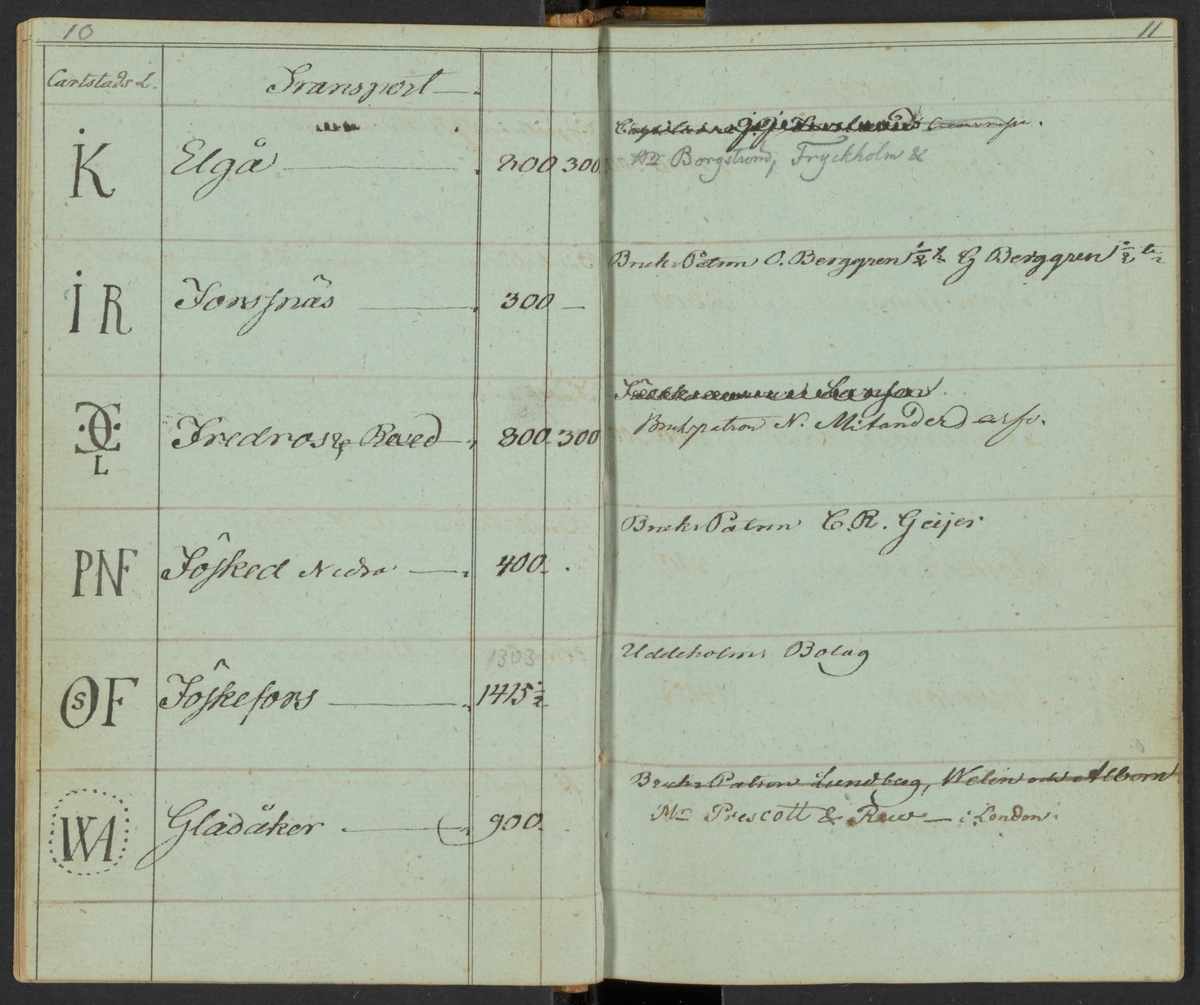 10
11
Cartstads L. Transport
K Elgå 200 300
Mr Borgstrom, Fryckholm &
I R Forssnäs 300 —
Bruks Patron O. Berggren 1/2 & Ej Berggren 1/2
L Fredros & Rosed 800 300
Brukspatron N. Mitander
PNF Föske​d Nedra 400
Bruks Patron C. R. Geijer
1303
OSF Föskefors 1425 1/2
Uddeholms Bolag
WA Gladåker 900
Bruks Patron Lundberg, Welin och Alborn
Mr Prescott & — i London